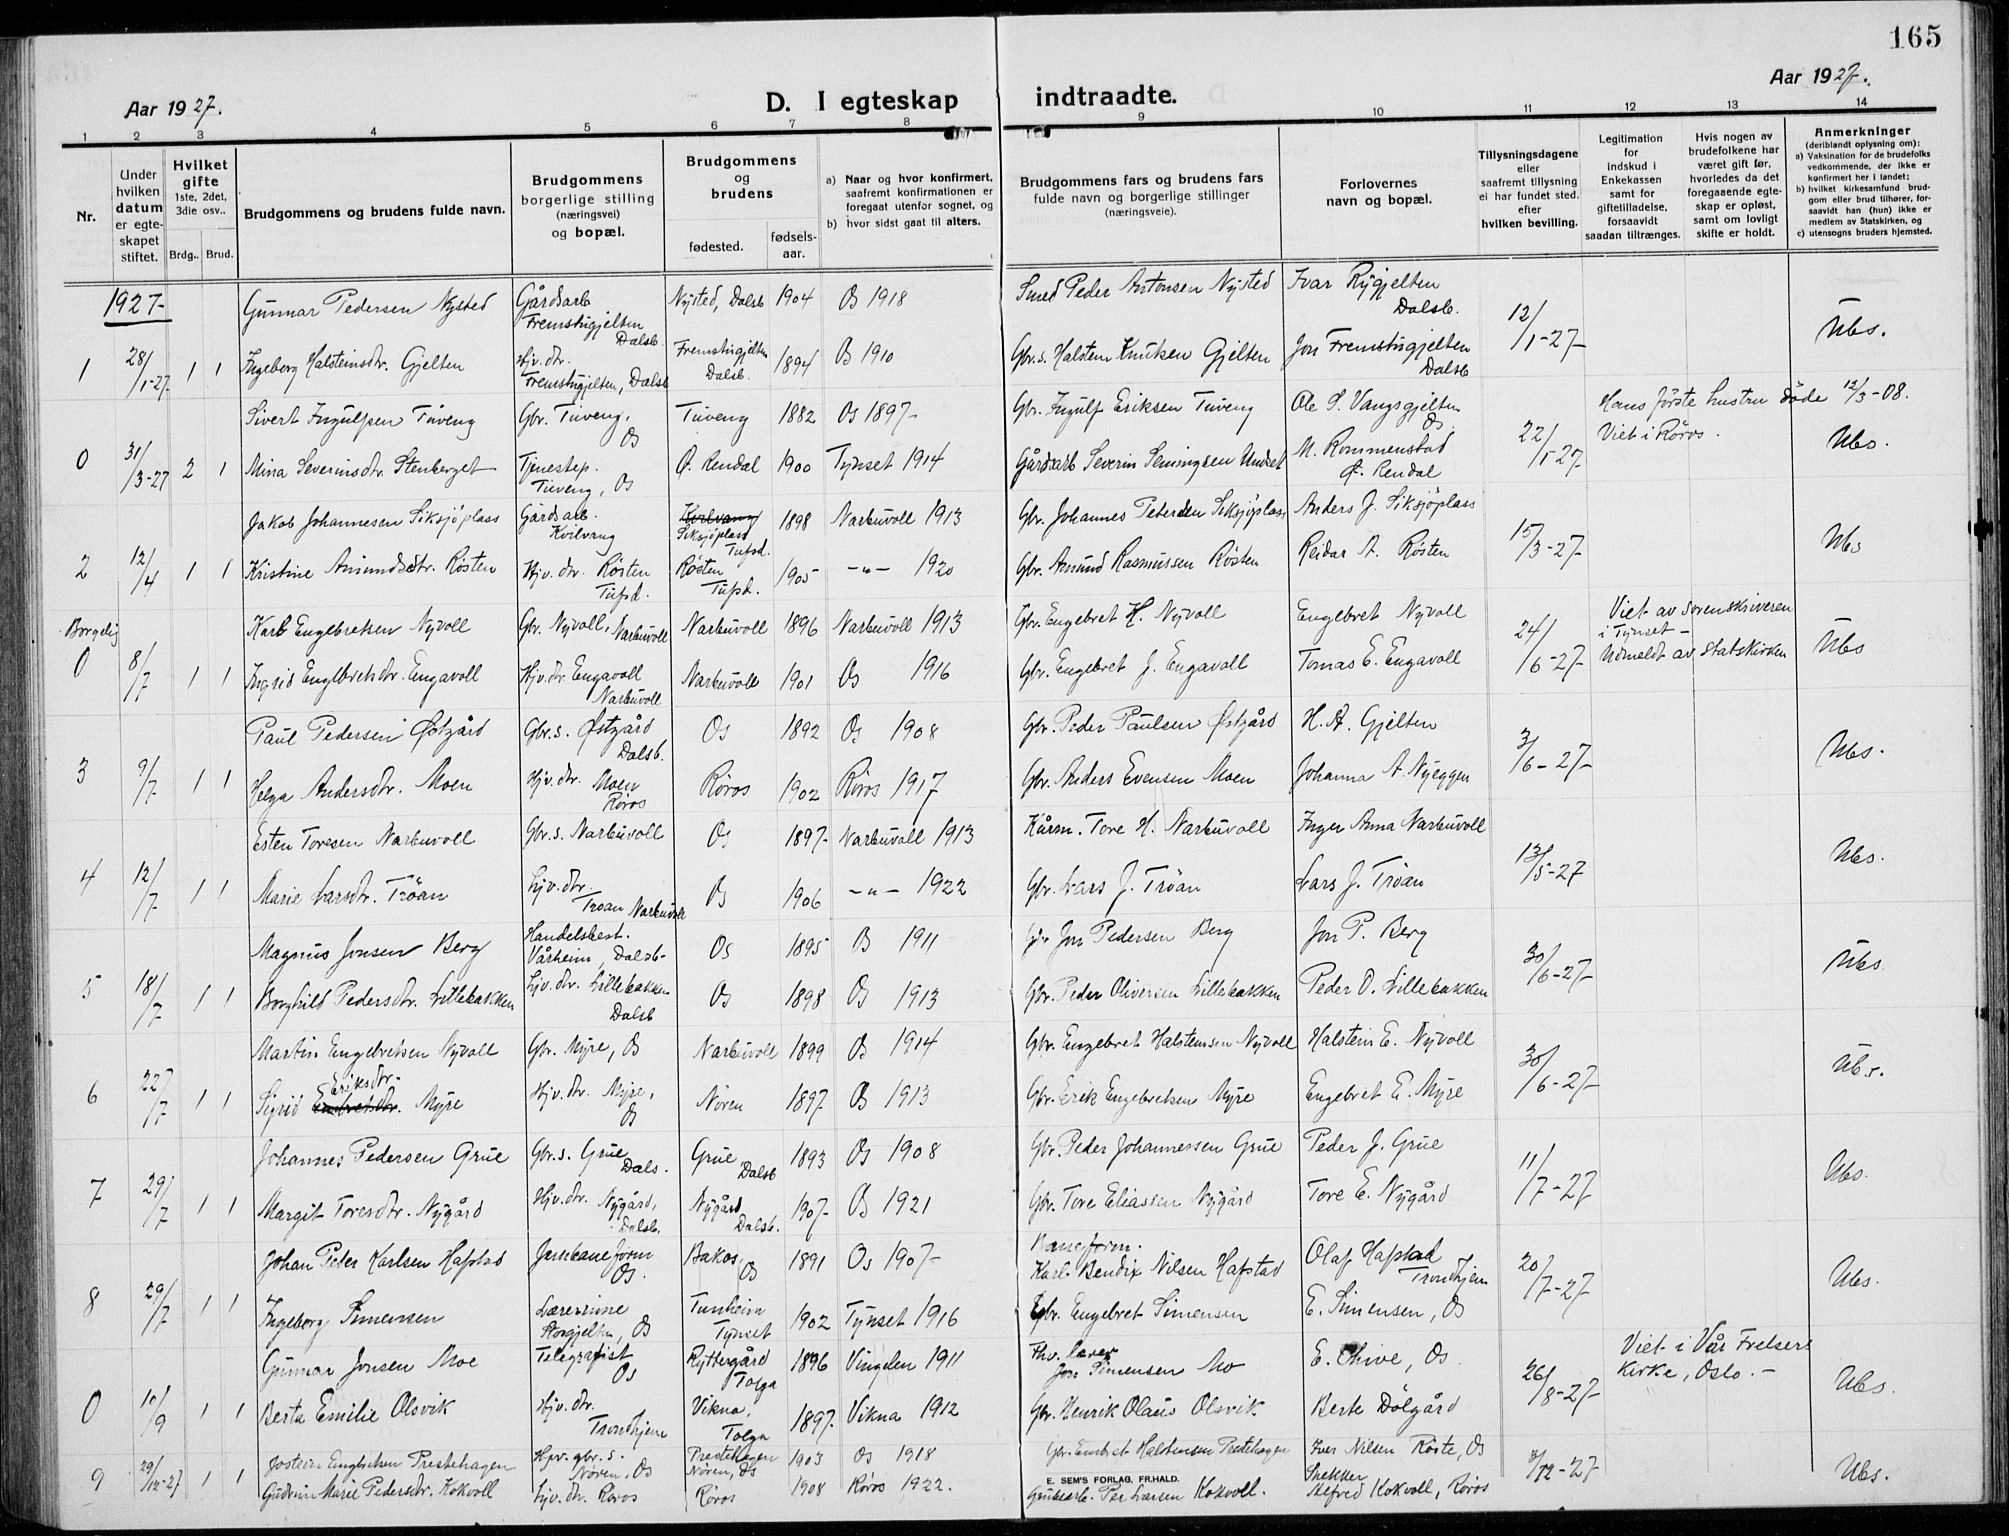 165
Aar 1927.
Aar 1927.
D. I egteskap indtraadte.
1 2 3 4 5 6 7 8 9 10 11 12 13 14
Nr.
Under hvilken datum er egteskapet stiftet.
Hvilket gifte 1ste, 2det, 3die osv..
Brdg.. Brud.
Brudgommens og brudens fulde navn.
Brudgommens borgerlige stilling (næringsvei) og bopæl.
Brudgommens og brudens
fødested.
fødsels-aar.
a) Naar og hvor konfirmert, saafremt konfirmationen er foregaat utenfor sognet, og
b) hvor sidst gaat til alters.
Brudgommens fars og brudens fars fulde navn og borgerlige stillinger (næringsveie).
Forlovernes navn og bopæl.
Tillysningsdagene eller saafremt tillysning ei har fundet sted. efter hvilken bevilling.
Legitimation for indskud i Enkekassen samt for giftetilladelse, forsaavidt saadan tiltrænges.
Hvis nogen av brudefolkene har været gift før, hvorledes da det foregaaende egteskap er opløst, samt om lovligt skifte er holdt.
Anmerkninger (deriblandt oplysning om):
a) Vaksination for de brudefolks vedkommende, der ikke er konfirmert her i landet;
b) hvilket kirkesamfund brudgom eller brud tilhører, forsaavidt han (hun) ikke er medlem av Statskirken, og
c) utensogns bruders hjemsted.
1927- Gunnar Pedersen Nysted Gårdsarb Fremstugjelten Dalsb. Nysted, Dalsb 1904 Os 1918 Smed Peder Antonsen Nysted Ivar Rygjelten Dalsb. 12/1-27 Ubs.
1 28/1-27 1 1 Ingeborg Halsteinsdtr. Gjelten Hjv. dtr. Fremstugjelten, Dalsb Fremstugjelten Dalsb. 1894 Os 1910 Gbr. s. Halsten Knutsen Gjelten Jon Fremstugjelten Dalsb
Sivert Ingulfsen Tuveng Gbr. Tuveng, Os Tuveng 1882 Os 1897- Gbr. Ingulf Eriksen Tuveng Ole S. Vangsgjelten Os 22/1-27 Hans første hustru døde 12/3-08. Viet i Røros. Ubs.
0 31/3-27 2 1 Mina Severinsdtr. Stenberget Tjenestep. Tuveng, Os Ø. Rendal 1900 Tynset 1914 Gårdsarb Severin Semingsen Undset M. Rommenstad Ø. Rendal
Jakob Johannesen Siksjøplass Gårdsarb. Kvilvang Kvilvang Siksjøplass Tufsd. 1898 Narbuvoll 1913 Gbr. Johannes Petersen Siksjøplass Anders J. Siksjøplass 15/3-27- Ubs
2 12/4 1 1 Kristine Amundsdtr. Røsten Hjv. dtr. Røsten Tufsd. Røsten Tufsd. 1905 -"- 1920 Gbr. Amund Rasmussen Røsten Reidar A. Røsten
Borgelig Karl Engebretsen Nyvoll Gbr. Nyvoll, Narbuvoll Narbuvoll 1896 Narbuvoll 1913 Gbr. Engebret H. Nyvoll Engebret Nyvoll 24/6-27- Viet av sorenskriveren i Tynset - Utmeldt av statskirken Ubs
0 8/7 1 1 Ingrid Englbretsdtr. Engavoll Hjv. dtr. Engavoll Narbuvoll Narbuvoll 1901 Os 1916 Gbr. Engebret J. Engavoll Tomas E. Engavoll
Paul Pedersen Østgård Gbr. s. Østgård Dalsb. Os 1892 Os 1908 Gbr. Peder Paulsen Østgård H. A. Gjelten 3/6-27- Ubs.
3 9/7 1 1 Helga Andersdtr. Moen Hjv. dtr. Moen Røros Røros 1902 Røros 1917 Gbr. Anders Evensen Moen Johanna A. Nyeggen
Esten Toresen Narbuvoll Gbr. s. Narbuvoll Os 1897- Narbuvoll 1913 Kårm. Tore H. Narbuvoll Inger Anna Narbuvoll 13/5-27 Ubs.
4 12/7 1 1 Marie Larsdtr. Trøan Hjv. dtr. Trøan Narbuvoll Os 1906 -"- 1922 Gbr. Lars J. Trøan Lars J. Trøan
Magnus Jonsen Berg Handelsbest. Vårheim, Dalsb- Os 1895 Os 1911 Gbr Jon Pedersen Berg Jon P. Berg 30/6-27- Ubs.
5 18/7 1 1 Borghild Pedersdtr. Lillebakken Hjv. dtr. Lillebakken Dalsb Os 1898 Os 1913 Gbr. Peder Oliversen Lillebakken Peder O. Lillebakken
Martin Engebretsen Nyvoll Gbr. Myre, Os Narbuvoll 1899 Os 1914 Gbr. Engebret Halstensen Nyvoll Halstein E. Nyvoll 30/6-27- Ubs.
6 22/7 1 1 Sigrid Eriksdtr. Myre Hjv. dtr. Myre, Os Nøren 1897 Os 1913 Gbr. Erik Engebretsen Myre Engebret E. Myre
Johannes Pedersen Grue Gbr. s. Grue Dals. Grue Dalsb 1893 Os 1908 Gbr. Peder Johannessen Grue Peder J. Grue 11/7-27 Ubs.
7 29/7 1 1 Margit Toresdtr. Nygård Hjv. dtr. Nygård, Dalsb. Nygård Dalsb. 1907- Os 1921 Gbr. Tore Eliassen Nygård Tore E. Nygård
Johan Peter Karlsen Hafstad Jernbaneform Os. Bakos, Os 1891 Os 1907- Baneform. Karl Bendix Nilsen Hafstad Olaf Hafstad Trondhjem 20/7-27- Ubs.
8 29/7 1 1 Ingeborg Simensen Lærerinne Storgjelten, Os Tunheim Tynset 1902 Tynset 1916 Gbr. Engebret Simensen E. Simensen, Os
Gunnar Jonsen Moe Telegrafist Os Ryttergård Tolga 1896 Vingelen 1911 Fhv. lærer Jon Simensen Mo E. Chive, Os 26/8-27- Viet i Vår Frelsers Kirke, Oslo.- Ubs.
0 10/9 1 1 Berta Emilie Olsvik Hjv. dtr. Trondhjem Vikna, Tolga 1897. Vikna 1912 Gbr. Henrik Olaus Olsvik Berte Dølgård
Jostein Engebretsen Prestehagen Hpv. gbr. s. Nøren, Os Prestehagen Nøren, Os 1903 Os 1918 Gbr. Embret Halstensen Prestehagen Iver Nilsen Røste, Os 3/12-27 Ubs.
9 29/12-27 1 1 Gudrun Marie Pedersdtr. Kokvoll Hjv. dtr. Røros Røros 1908 Røros 1922. Grubearb. Per Larsen Kokvoll. Snekker Alfred Kokvoll, Røros
E. SEM'S FORLAG, FR.HALD.